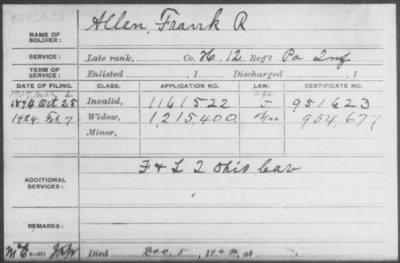 Allen, Frank R
NAME OF SOLDIER:
SERVICE: Late rank, Co. H, 12 Reg't Pa Inf
TERM OF SERVICE: Enlisted , 1 Discharged , 1
DATE OF FILING. CLASS. APPLICATION NO. LAW. CERTIFICATE NO.
1894 Oct. 25 Invalid, 1161522 951623
1924 Feb 7 Widow, 1,215,400 954,677
Minor,
ADDITIONAL SERVICES: F & L I Ohio Cav
REMARKS:
Died Dec. 5, at